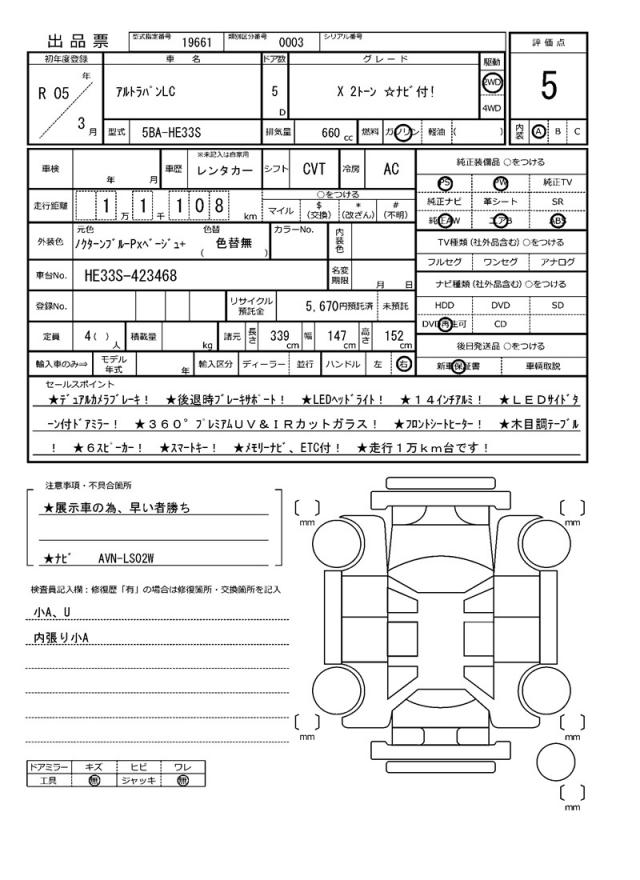 出品票
型式指定番号 19661 類別区分番号 0003 シリアル番号
評価点
5
初年度登録 車名 ドア数 グレード 駆動
R 05 年 3 月
アルトラパンLC 5 D X 2トーン ☆ナビ付! 2WD
4WD
型式 5BA-HE33S 排気量 660 cc 燃料 ガソリン 軽油 ( )
内装 A B C
車検 年 月 車歴 ※未記入は自家用 レンタカー シフト CVT 冷房 AC
純正装備品 ○をつける
PS PW 純正TV
走行距離 1 万 1 千 1 0 8 km
○をつける
マイル $(交換) *(改ざん) #(不明)
純正ナビ 革シート SR
純正AW エアB ABS
外装色 元色 ノクターンブルーPxベージュ+ 色替 ( 色替無 ) カラーNo. 内装色
TV種類 (社外品含む) ○をつける
フルセグ ワンセグ アナログ
車台No. HE33S-423468 名変期限 月 日
ナビ種類 (社外品含む) ○をつける
登録No. リサイクル預託金 5,670円預託済 未預託
HDD DVD SD
DVD再生可 CD
定員 4( ) 人 積載量 kg 諸元 長さ 339 cm 幅 147 cm 高さ 152 cm
後日発送品 ○をつける
輸入車のみ⇒ モデル年式 年 輸入区分 ディーラー 並行 ハンドル 左 右
新車保証書 車輌取説
セールスポイント
★デュアルカメラブレーキ! ★後退時ブレーキサポート! ★LEDヘッドライト! ★14インチアルミ! ★LEDサイドタ
ーン付ドアミラー! ★360°プレミアムUV&IRカットガラス! ★フロントシートヒーター! ★木目調テーブル
! ★6スピーカー! ★スマートキー! ★メモリーナビ、ETC付! ★走行1万km台です!
注意事項・不具合箇所
★展示車の為、早い者勝ち
★ナビ AVN-LS02W
検査員記入欄:修復歴「有」の場合は修復箇所・交換箇所を記入
小A、U
内張り小A
ドアミラー キズ ヒビ ワレ
工具 無 ジャッキ 無
mm
mm
mm
mm
mm